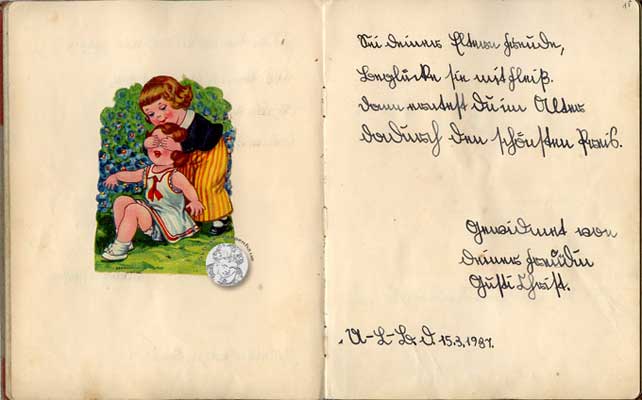 Sei deiner Eltern Freude,
beglücke sie mit Fleiß.
dann erntest du im Alter
dadurch den schönsten Preis.
Gewidmet von
deiner Freundin
Gusti Christ.